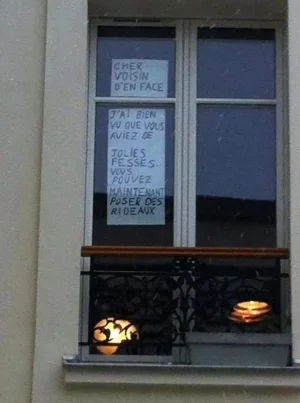 CHER
VOISIN
D'EN FACE
J'AI BIEN
VU QUE VOUS
AVIEZ DE
JOLIES
FESSES
VOUS
POUVEZ
MAINTENANT
POSER DES
RIDEAUX